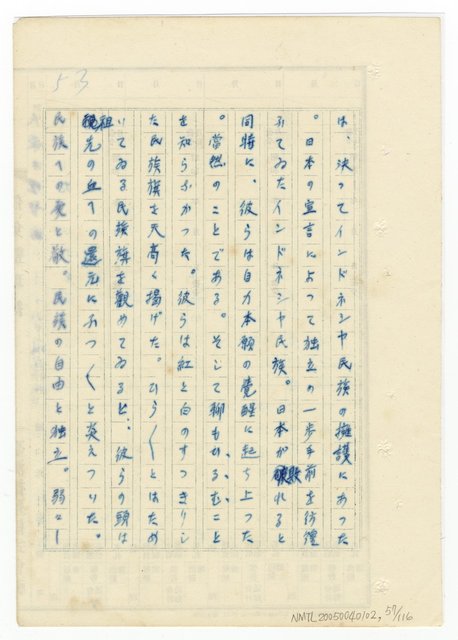 53
は、決つてインドネシヤ民族の擁護にあつた
。日本の宣言によつて独立の一歩手前を彷徨
ふてゐたインドネシヤ民族。日本が敗れると
同時に、彼らは自力本願の覚醒に起ち上つた
。当然のことである。そして聊もひるむこと
を知らなかつた。彼らは紅と白のすつきりし
た民族旗を天高く揚げた。ひらひらとはため
いてゐる民族旗を観めてゐると、彼らの頭は
祖先の血への還元にふつふつと炎えついた。
民族への愛と敬。民族の自由と独立。弱々し
NMTL20050040102, 57/116